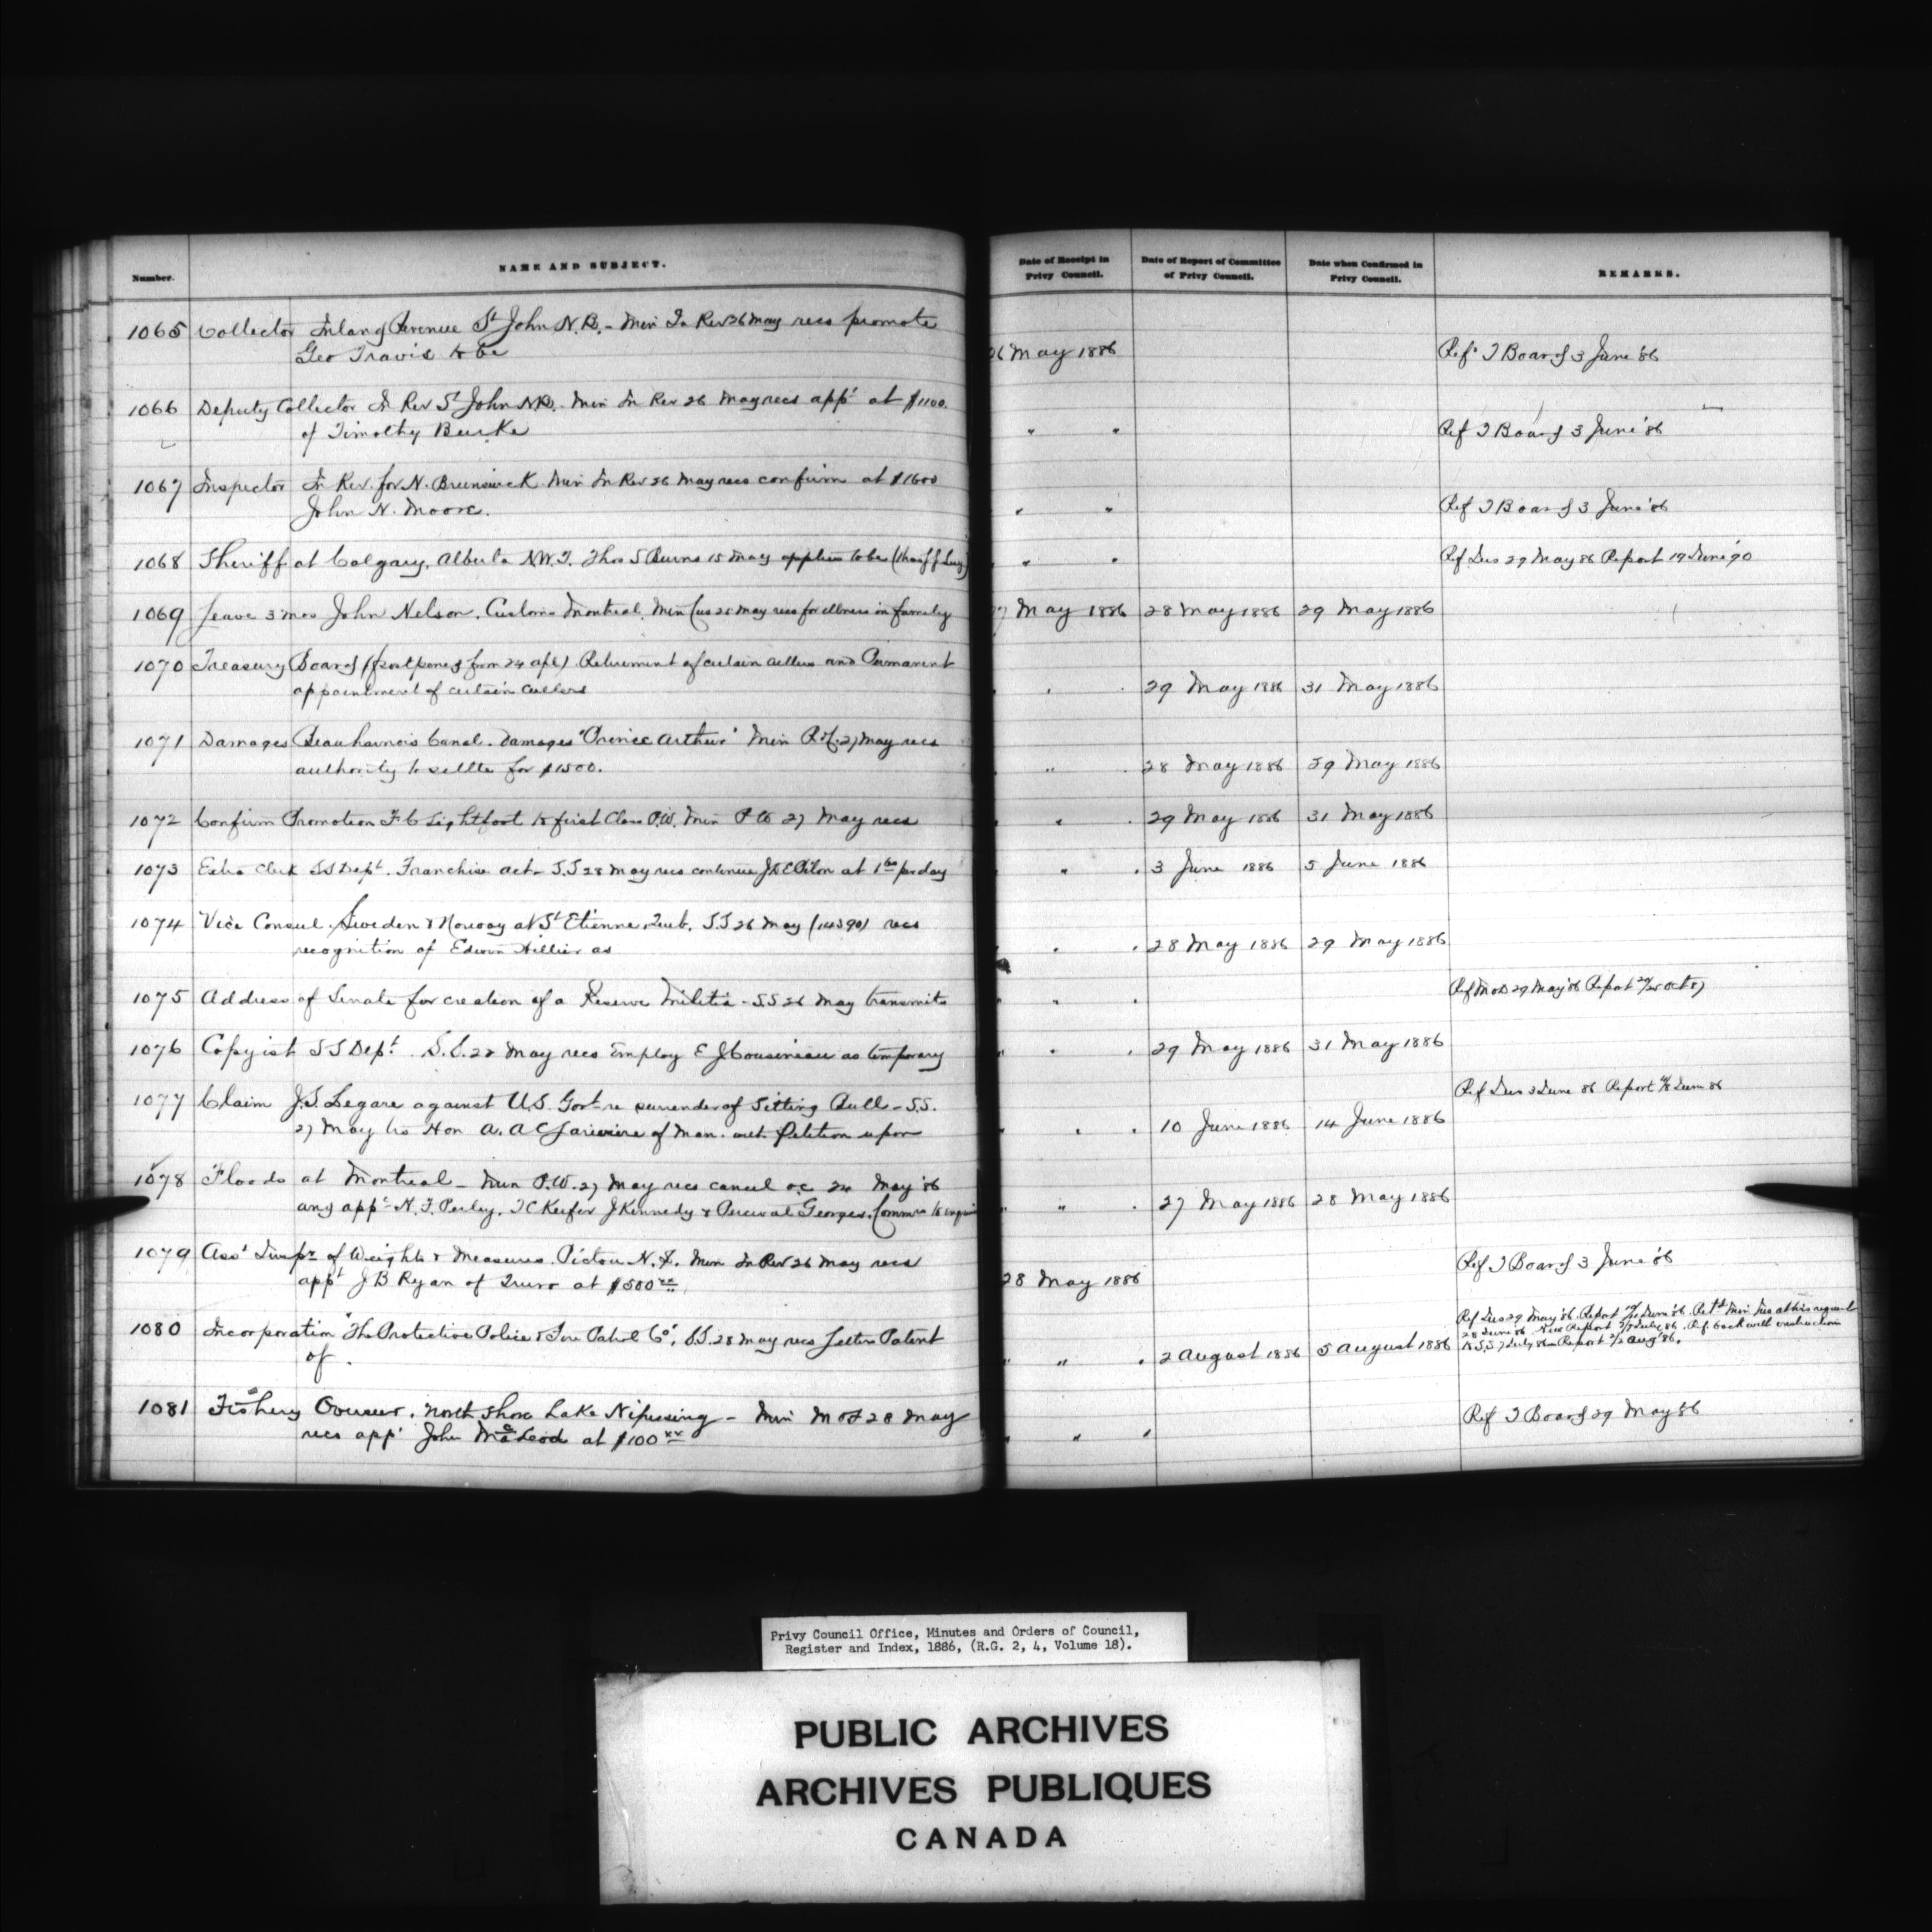 Number. NAME AND SUBJECT. Date of Receipt in Privy Council. Date of Report of Committee of Privy Council. Date when Confirmed in Privy Council. REMARKS.
1065 Collector Inland Revenue St John N.B. - Min In Rev 26 May recs promote
Geo Travis to be 26 May 1886 Ref T Board 3 June '86
1066 Deputy Collector In Rev St John N.B. Min In Rev 26 May recs appt at $1100.
of Timothy Burke " " Ref T Board 3 June '86
1067 Inspector In Rev. for N. Brunswick Min In Rev 26 May recs confirm at $1600
John N. Moore. " " Ref T Board 3 June '86
1068 Sheriff at Calgary, Alberta N.W.T. Thos S Burns 15 May applies to be " " Ref 29 May 86 Report 19 June '90
1069 Leave 3 mos John Nelson. Customs Montreal. Min Cus 25 May recs for illness in family 27 May 1886 28 May 1886 29 May 1886
1070 Treasury Board (postponed from 24 apl) Retirement of certain cullers and Permanent
appointment of certain cullers " " 29 May 1886 31 May 1886
1071 Damages Beauharnois Canal. Damages "Prince Arthur" Min 27 May recs
authority to settle for $1500. " " 28 May 1886 29 May 1886
1072 Confirm Promotion F C Lightfoot to first Class P.W. Min P W 27 May recs " " 29 May 1886 31 May 1886
1073 Extra Clerk SS Dept. Franchise act - S.S 28 May recs continue Pilon at per day " " 3 June 1886 5 June 1886
1074 Vice Consul. Sweden & Norway at St Etienne, Queb. S.S 26 May (14390) recs
recognition of Edwin Hillier as " " 28 May 1886 29 May 1886
1075 Address of Senate for creation of a Reserve Militia - S.S 26 May transmits " " Ref M&D 29 May '86 Report Oct 87
1076 Copyist S S Dept. S.S. 22 May recs Employ E J Cousineau as temporary " " 29 May 1886 31 May 1886
1077 Claim J.S. Legare against U.S. Govt re surrender of Sitting Bull - S.S. Ref 3 June 86 Report June 86
27 May Hon A. A C Lariviere of Man. Petition upon " " 10 June 1886 14 June 1886
1078 Floods at Montreal - Min P.W. 27 May recs cancel o.c 24 May '86
and appt H. F. Perley, T C Keefer J Kennedy & Percival Georges. Commrs to enquire " " 27 May 1886 28 May 1886
1079 Asst Inspr of Weights & Measures. Pictou N.S. Min In Rev 26 May recs Ref T Board 3 June '86
appt J B Ryan of Truro at $500 28 May 1886
1080 Incorporation "The Protective Police & Fire Patrol Co". S.S. 28 May recs Letters Patent Ref 29 May '86. Report June '86. Retd Min at his request
28 June 86 New Report July 86. Ref back with instruction
of. " " 2 August 1886 5 August 1886 to S.S 7 July 86 Report Aug '86.
1081 Fishery Overseer. North Shore Lake Nipissing - Min M & F 28 May Ref T Board 29 May 86
recs appt John McLeod at $100 xx " "
Privy Council Office, Minutes and Orders of Council,
Register and Index, 1886, (R.G. 2, 4, Volume 18).
PUBLIC ARCHIVES
ARCHIVES PUBLIQUES
CANADA